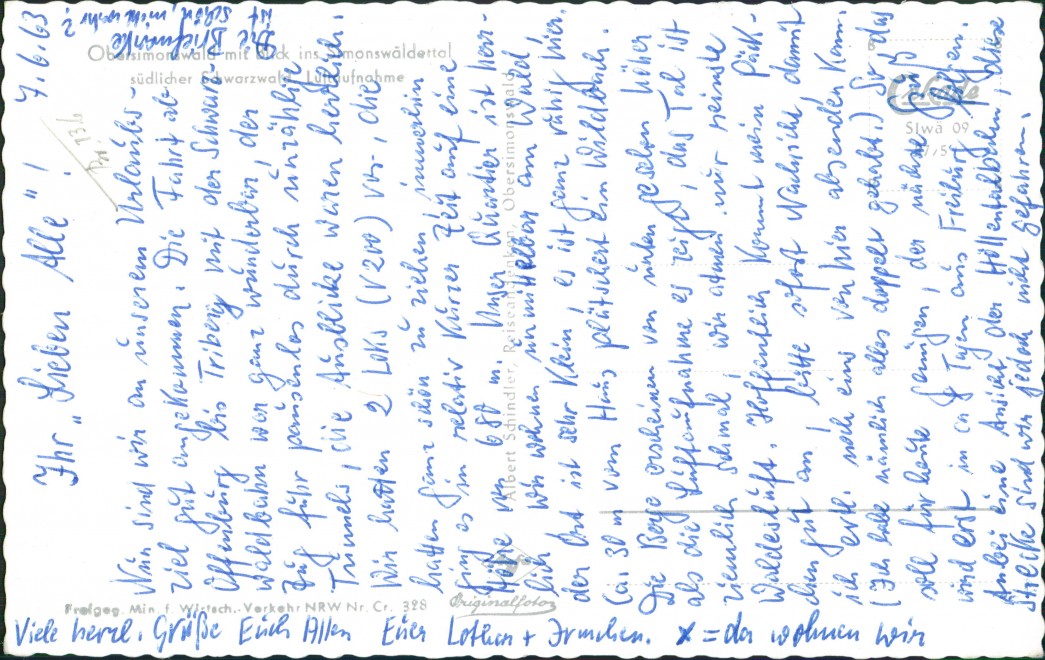 Ihr „Lieben Alle"! 7.6.63
Die Briefmarke
ist
schön, nicht wahr?
Nun sind wir an unserem Urlaubs-
ziel gut angekommen. Die Fahrt ab
Offenburg bis Triberg mit der Schwarz-
waldbahn war ganz wunderbar, der
Zug fuhr pausenlos durch unzählige
Tunnels, die Ausblicke waren herrlich.
Wir hatten 2 Loks (V200) vor, die
hatten ganz schön zu ziehen, immerhin
ging es in relativ kurzer Zeit auf eine
Höhe von 680 m. Unser Quartier ist herr-
lich. Wir wohnen unmittelbar am Wald,
der Ort ist sehr klein, es ist ganz ruhig hier.
Ca. 30 m vom Haus plätschert ein Wildbach.
Die Berge erscheinen von unten gesehen höher
als die Luftaufnahme es zeigt, das Tal ist
ziemlich schmal, wir atmen nur reinste
Waldesluft. Hoffentlich kommt mein Päck-
chen gut an, bitte sofort Nachricht damit
ich evtl. noch eins von hier absenden kann.
(Ich habe nämlich alles doppelt gehabt.) So das
soll für heute genügen, der nächste Gruß
wird erst in ca 8 Tagen aus Freiburg folgen.
Anbei eine Ansicht der Höllentalbahn, diese
Strecke sind wir jedoch nicht gefahren.
Viele herzl. Grüße Euch Allen Euer Lothar + Irmchen. x = da wohnen wir
Obersimonswald mit Blick ins Simonswäldertal
südlicher Schwarzwald Luftaufnahme
Cekade
SIwä 09
Albert Schindler, Reiseandenken, Obersimonswald
Freigeg. Min. f. Wirtsch.-Verkehr NRW Nr. Cr. 328
Originalfoto